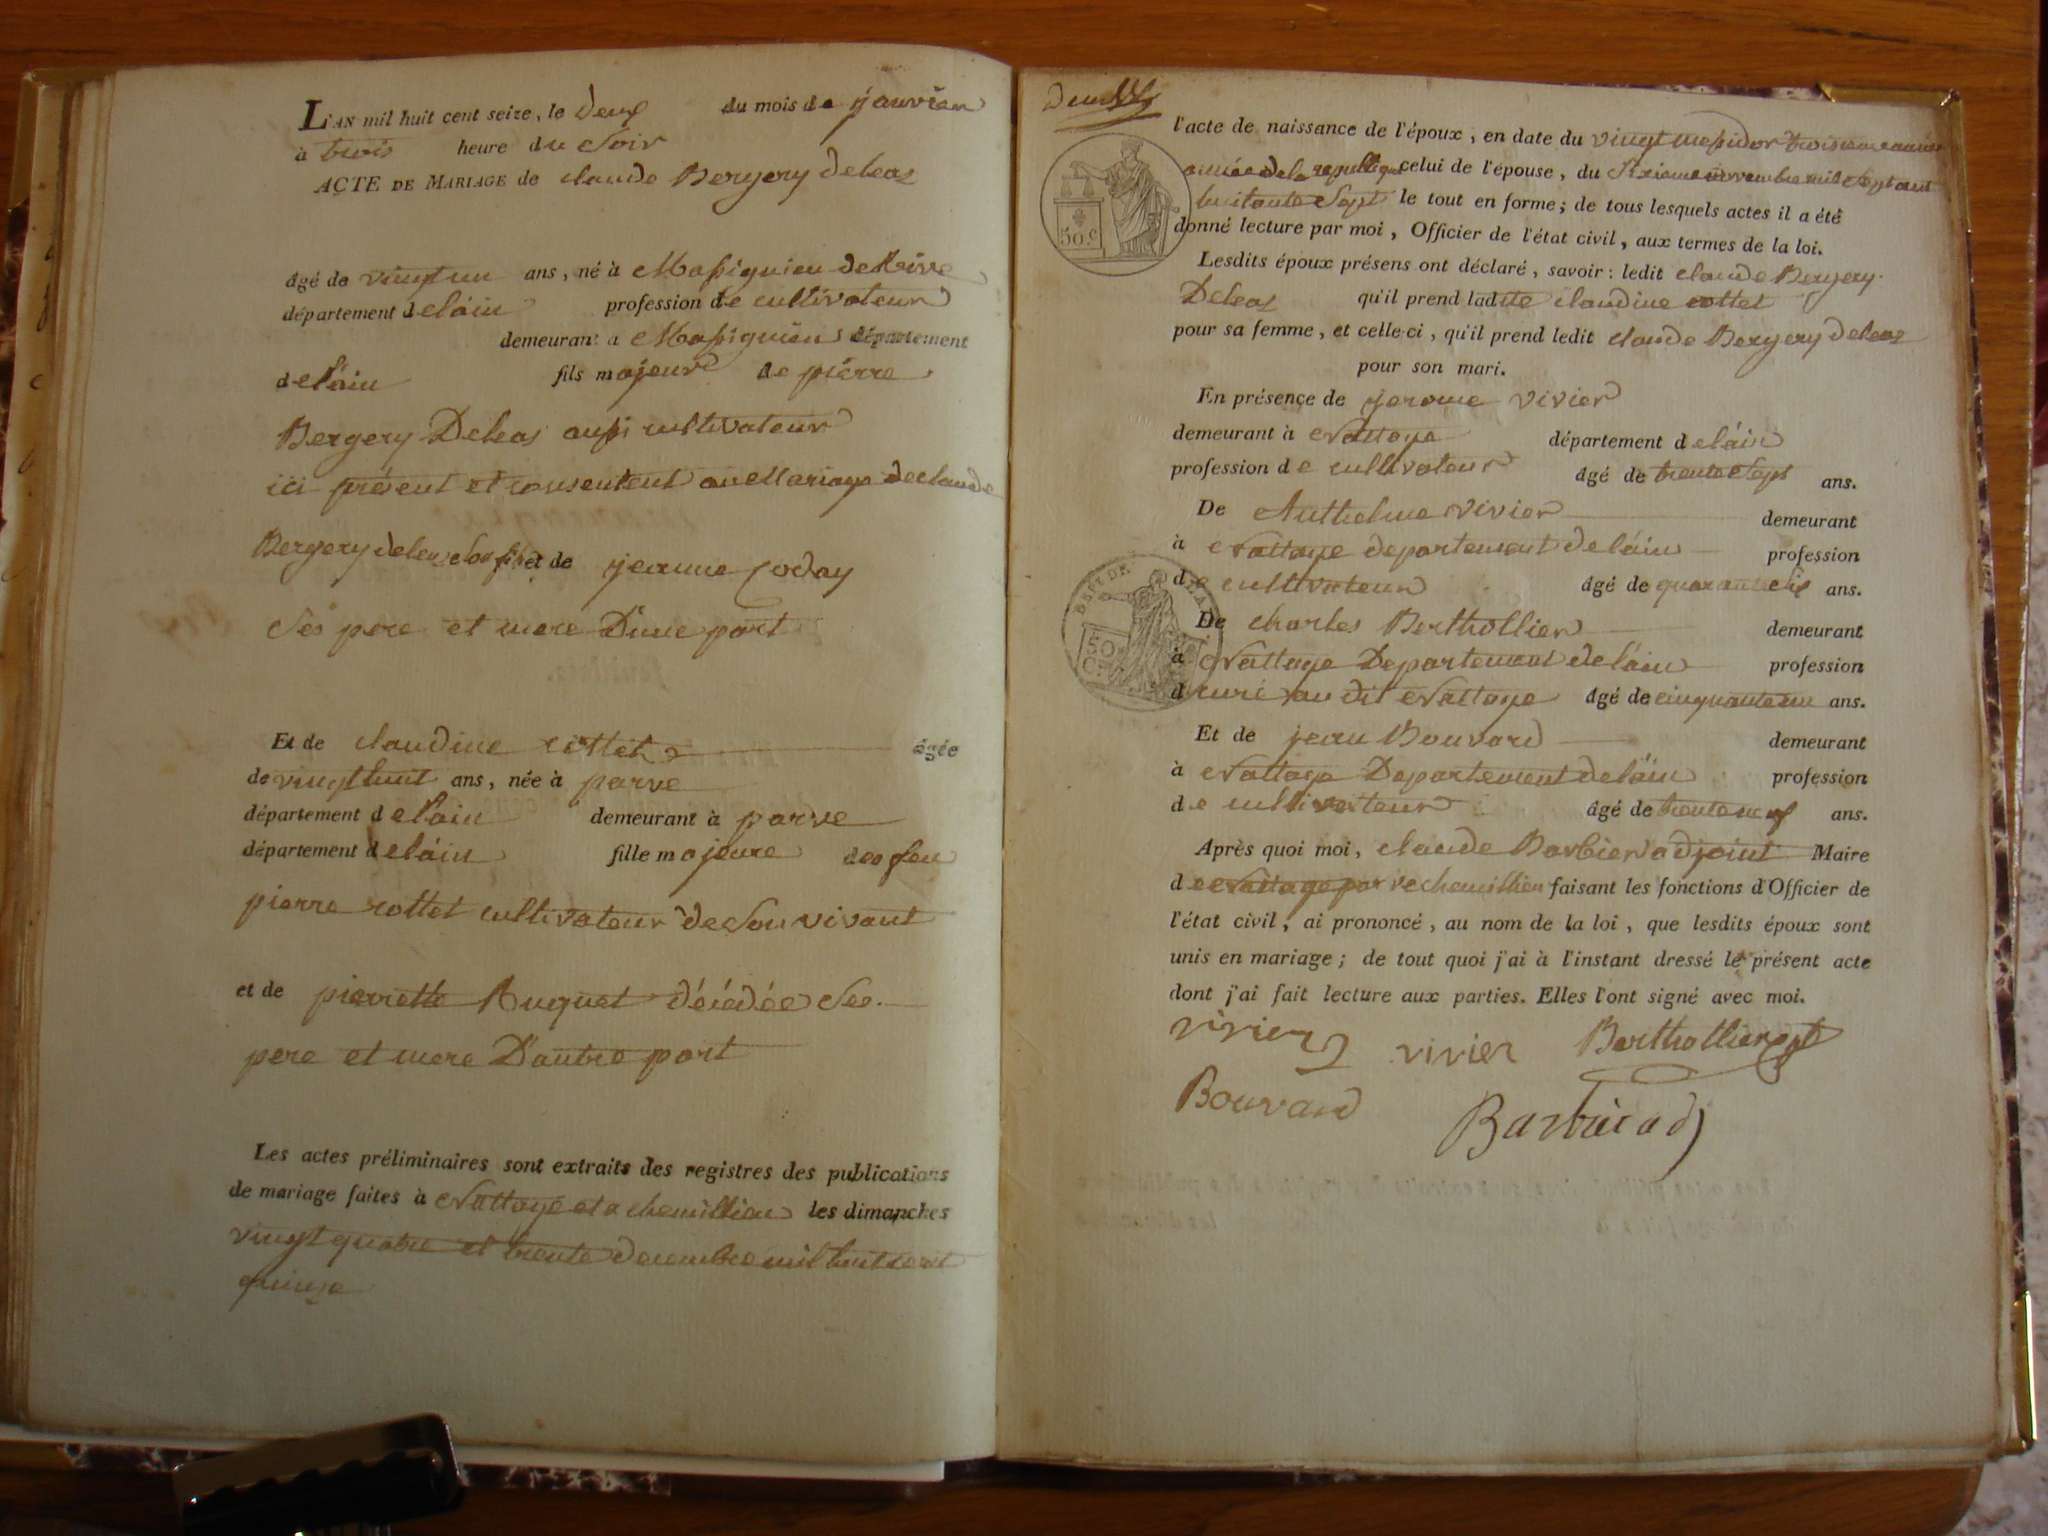 L'AN mil huit cent seize, le deux du mois de janvier
à trois heure du soir
ACTE DE MARIAGE de claude Bergery deleas
âgé de vingt un ans, né à Massignieu de Rive
département delain profession de cultivateur
demeurant a Massignieu département
delain fils majeure de pierre
Bergery Deleas aussi cultivateur
ici présent et consentent au Mariage de claude
Bergery deleas son fils et de jeanne joday
Ses pere et mere D'une part
Et de claudine rottet âgée
de vingt huit ans, née à parve
département delain demeurant à parve
département delain fille majeure de feu
pierre rottet cultivateur de Son vivant
et de pierrette Buquet décédée Ses
pere et mere D'autre part
Les actes préliminaires sont extraits des registres des publications
de mariage faites à Nattage et a chemillieu les dimanches
vingt quatre et trente decembre mil huit cent
quinze
deux
l'acte de naissance de l'époux, en date du vingt messidor troisieme année
année de la republique celui de l'épouse, du Sixieme novembre mil Sept cent
huitante Sept le tout en forme; de tous lesquels actes il a été
50 c
donné lecture par moi, Officier de l'état civil, aux termes de la loi.
Lesdits époux présens ont déclaré, savoir: ledit claude Bergery
Deleas qu'il prend ladite claudine rottet
pour sa femme, et celle-ci, qu'il prend ledit claude Bergery deleas
pour son mari.
En présence de jerome vivier
demeurant à Nattage département delain
profession de cultivateur âgé de trente Sept ans.
De Anthelme vivier demeurant
à Nattage departement delain profession
de cultivateur âgé de quarante Six ans.
De charles Berthollier demeurant
50
C.
à Nattage Departement delain profession
d curé au dit Nattage âgé de cinquante un ans.
Et de jean Bouvard demeurant
à Nattage Departement delain profession
de cultivateur âgé de trente neuf ans.
Après quoi moi, claude Barbier adjoint Maire
de Nattage parve chemillieu faisant les fonctions d'Officier de
l'état civil, ai prononcé, au nom de la loi, que lesdits époux sont
unis en mariage; de tout quoi j'ai à l'instant dressé le présent acte
dont j'ai fait lecture aux parties. Elles l'ont signé avec moi.
vivier vivier Berthollier
Bouvard Barbier adj